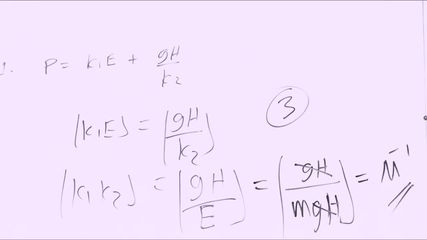 1. P = k₁E + gH/k₂
③
[k₁E] = [gH/k₂]
[k₁k₂] = [gH/E] = [gH/mgH] = M⁻¹